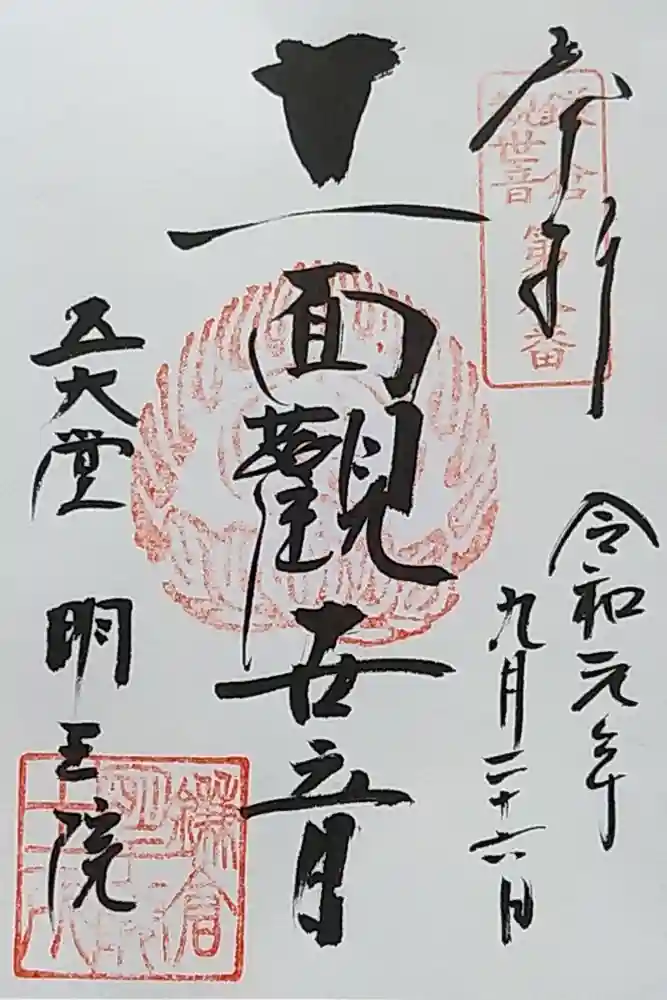 奉拝
鎌倉
観世音
第八番
令和元年
九月二十六日
十一面觀世音
五大堂
明王院
鎌倉